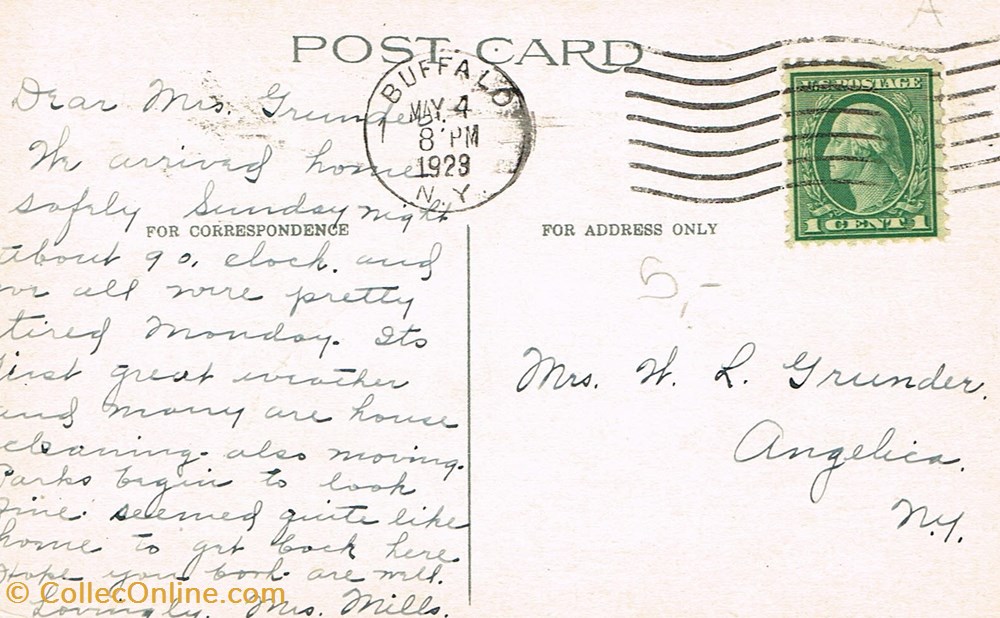 A
POST CARD
BUFFALO
MAY 4
8 PM
1923
N.Y.
1
U.S. POSTAGE
1 CENT 1
Dear Mrs. Grunder
We arrived home
safely Sunday night
FOR CORRESPONDENCE
about 9 o, clock. and
we all were pretty
tired Monday. Its
just great weather
and many are house
cleaning. also moving.
Parks begin to look
fine. seemed quite like
home to get back here
Hope you both are well.
Lovingly. Mrs. Mills.
FOR ADDRESS ONLY
5,-
Mrs. W. L. Grunder.
Angelica.
N.Y.
© CollecOnline.com